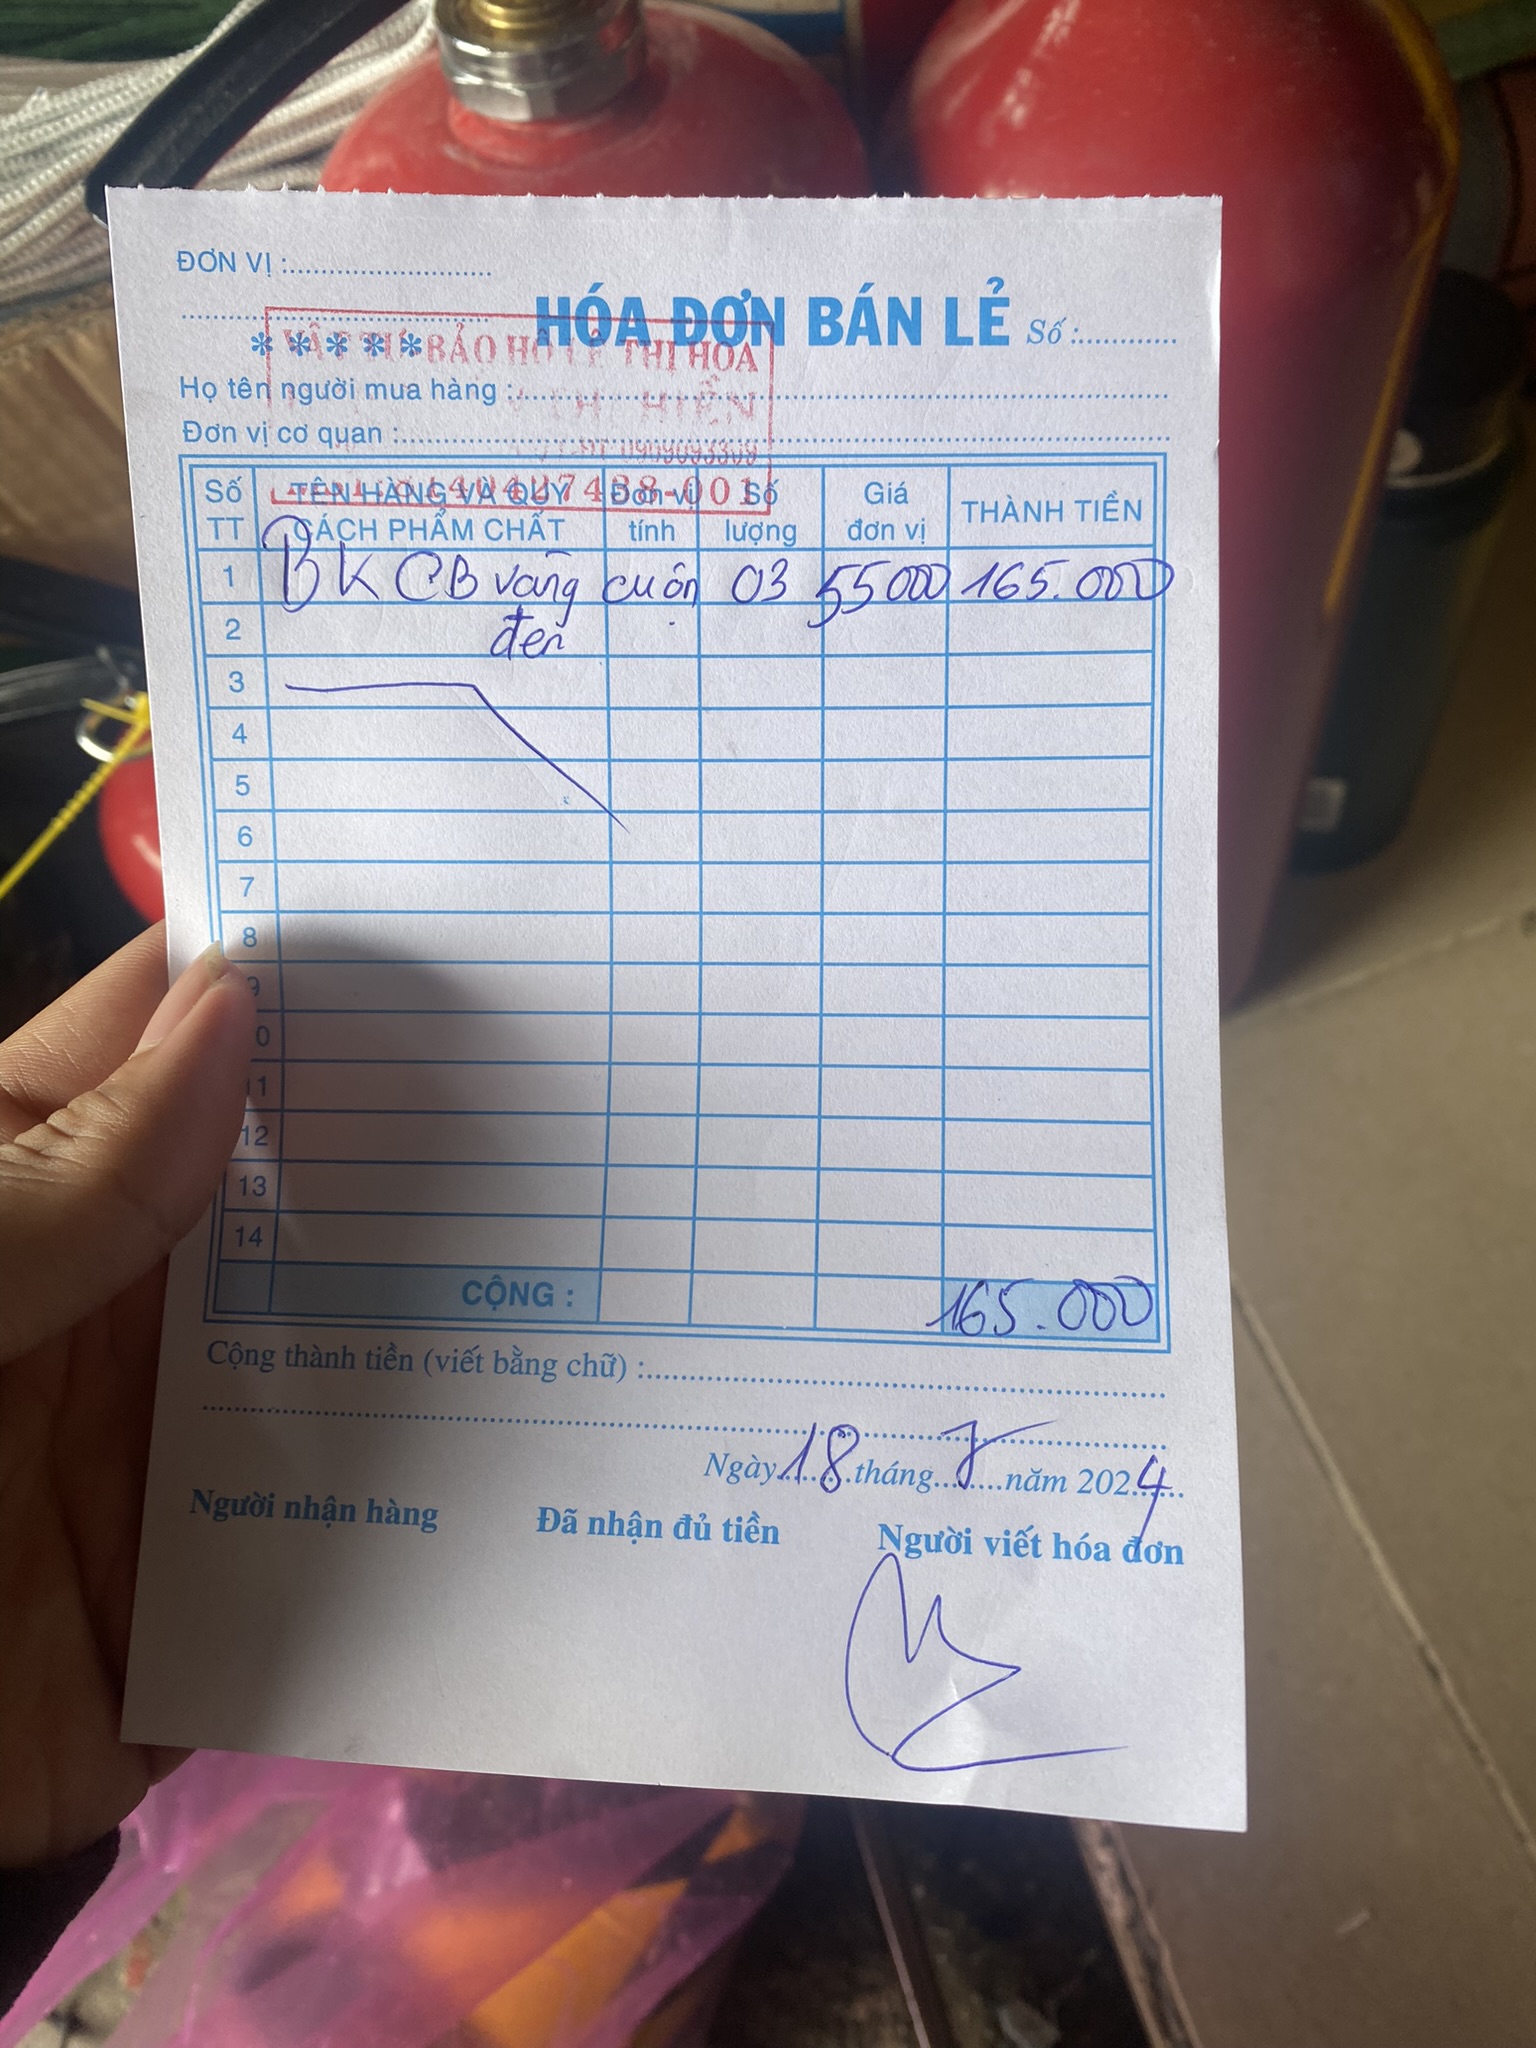 ĐƠN VỊ :
HÓA ĐƠN BÁN LẺ Số :
VẬT TƯ BẢO HỘ LÊ THỊ HOA
Họ tên người mua hàng :
HIỀN
Đơn vị cơ quan :
0909093309
Số TT TÊN HÀNG VÀ QUY CÁCH PHẨM CHẤT Đơn vị tính Số lượng Giá đơn vị THÀNH TIỀN
1 BK CB vàng cuộn 03 55000 165.000
2 đen
3
4
5
6
7
8
9
0
11
12
13
14
CỘNG : 165.000
Cộng thành tiền (viết bằng chữ) :
Ngày 18 tháng 7 năm 2024
Người nhận hàng Đã nhận đủ tiền Người viết hóa đơn